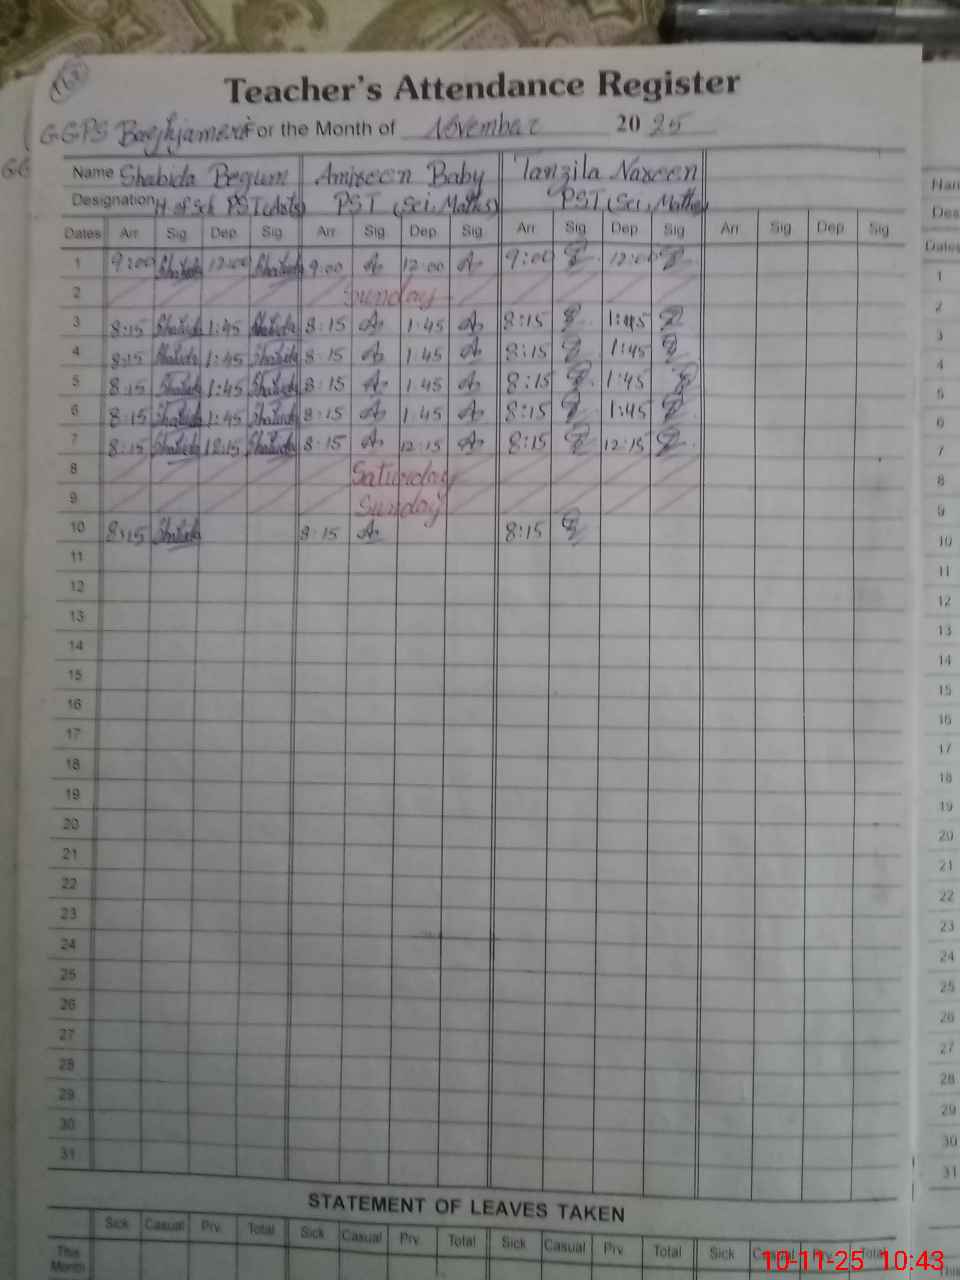 Teacher's Attendance Register
GGPS For the Month of November 20 25
Name Shahida Begum Amreen Baby Tanzila Nazeen
Designation H. of Sch PST (Arts) PST (Sci, Maths) PST (Sci, Maths)
Dates Arr Sig Dep Sig Arr Sig Dep Sig Arr Sig Dep Sig Arr Sig Dep Sig
1 9:00 Shahida 12:00 Shahida 9:00 A 12:00 A 9:00 12:00
2 Sunday
3 8:15 Shahida 1:45 Shahida 8:15 A 1:45 A 8:15 1:45
4 8:15 Shahida 1:45 Shahida 8:15 A 1:45 A 8:15 1:45
5 8:15 Shahida 1:45 Shahida 8:15 A 1:45 A 8:15 1:45
6 8:15 Shahida 1:45 Shahida 8:15 A 1:45 A 8:15 1:45
7 8:15 Shahida 12:15 Shahida 8:15 A 12:15 A 8:15 12:15
8 Saturday
9 Sunday
10 8:15 Shahida 8:15 A 8:15
11
12
13
14
15
16
17
18
19
20
21
22
23
24
25
26
27
28
29
30
31
STATEMENT OF LEAVES TAKEN
Sick Casual Prv. Total Sick Casual Prv. Total Sick Casual Prv. Total Sick Casual Prv. Total
This
Month
10-11-25 10:43
Dates
1
2
3
4
5
6
7
8
9
10
11
12
13
14
15
16
17
18
19
20
21
22
23
24
25
26
27
28
29
30
31